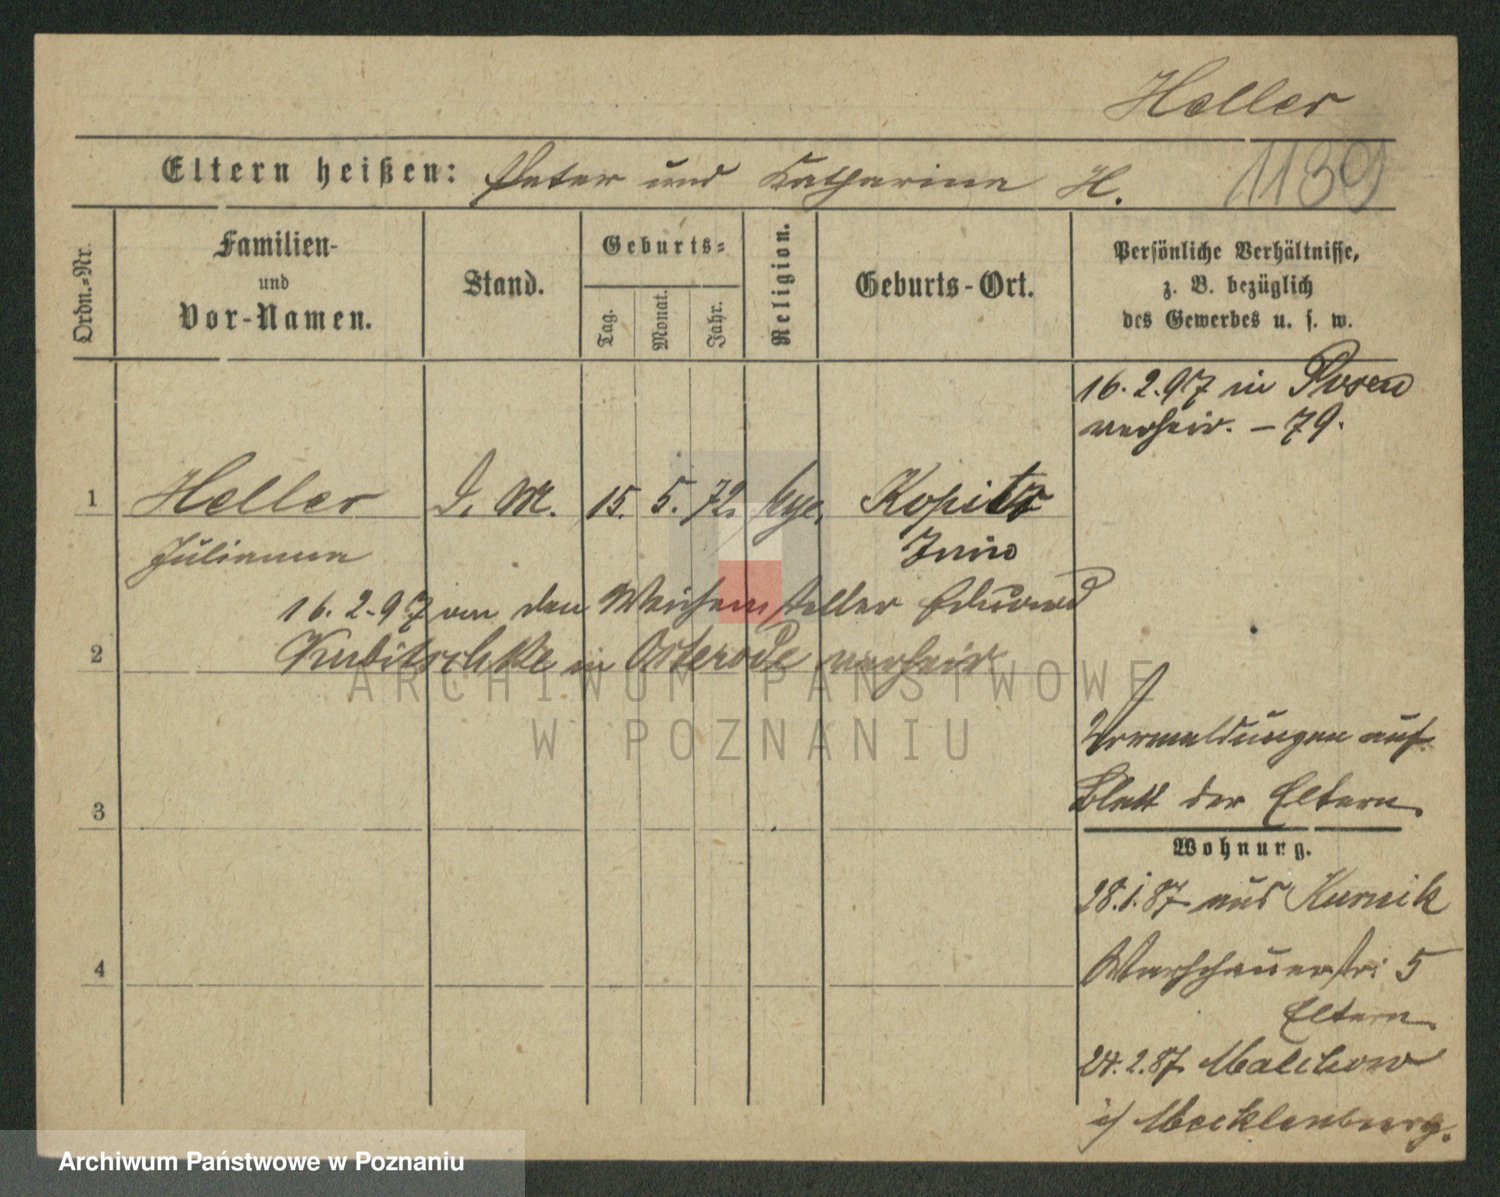 Heller
Eltern heißen: Peter und Katharina H. 1139
Ordn.-Nr.
Familien-
und
Vor-Namen.
Stand.
Geburts-
Tag.
Monat.
Jahr.
Religion.
Geburts-Ort.
Persönliche Verhältnisse,
z. B. bezüglich
des Gewerbes u. s. w.
16. 2. 97 in Posen
verheir. - 79.
1 Heller D. M. 15. 5. 72.
Julianna
16. 2. 97 an den Weichensteller Eduard
2 Kubitschke in Osterode verheir
Vormeldungen auf
Blatt der Eltern.
3
Wohnung.
28. 1. 87 aus Kurnik
4 Warschauerstr: 5
Eltern.
24. 2. 87 Malchow
i/ Mecklenburg.
ARCHIWUM PAŃSTWOWE
W POZNANIU
Archiwum Państwowe w Poznaniu